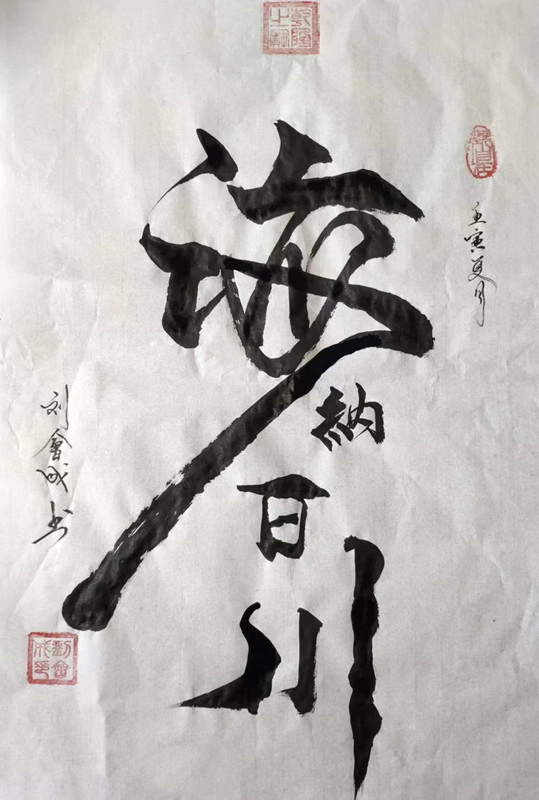 壬寅夏月
海納百川
刘會成书
劉會成印